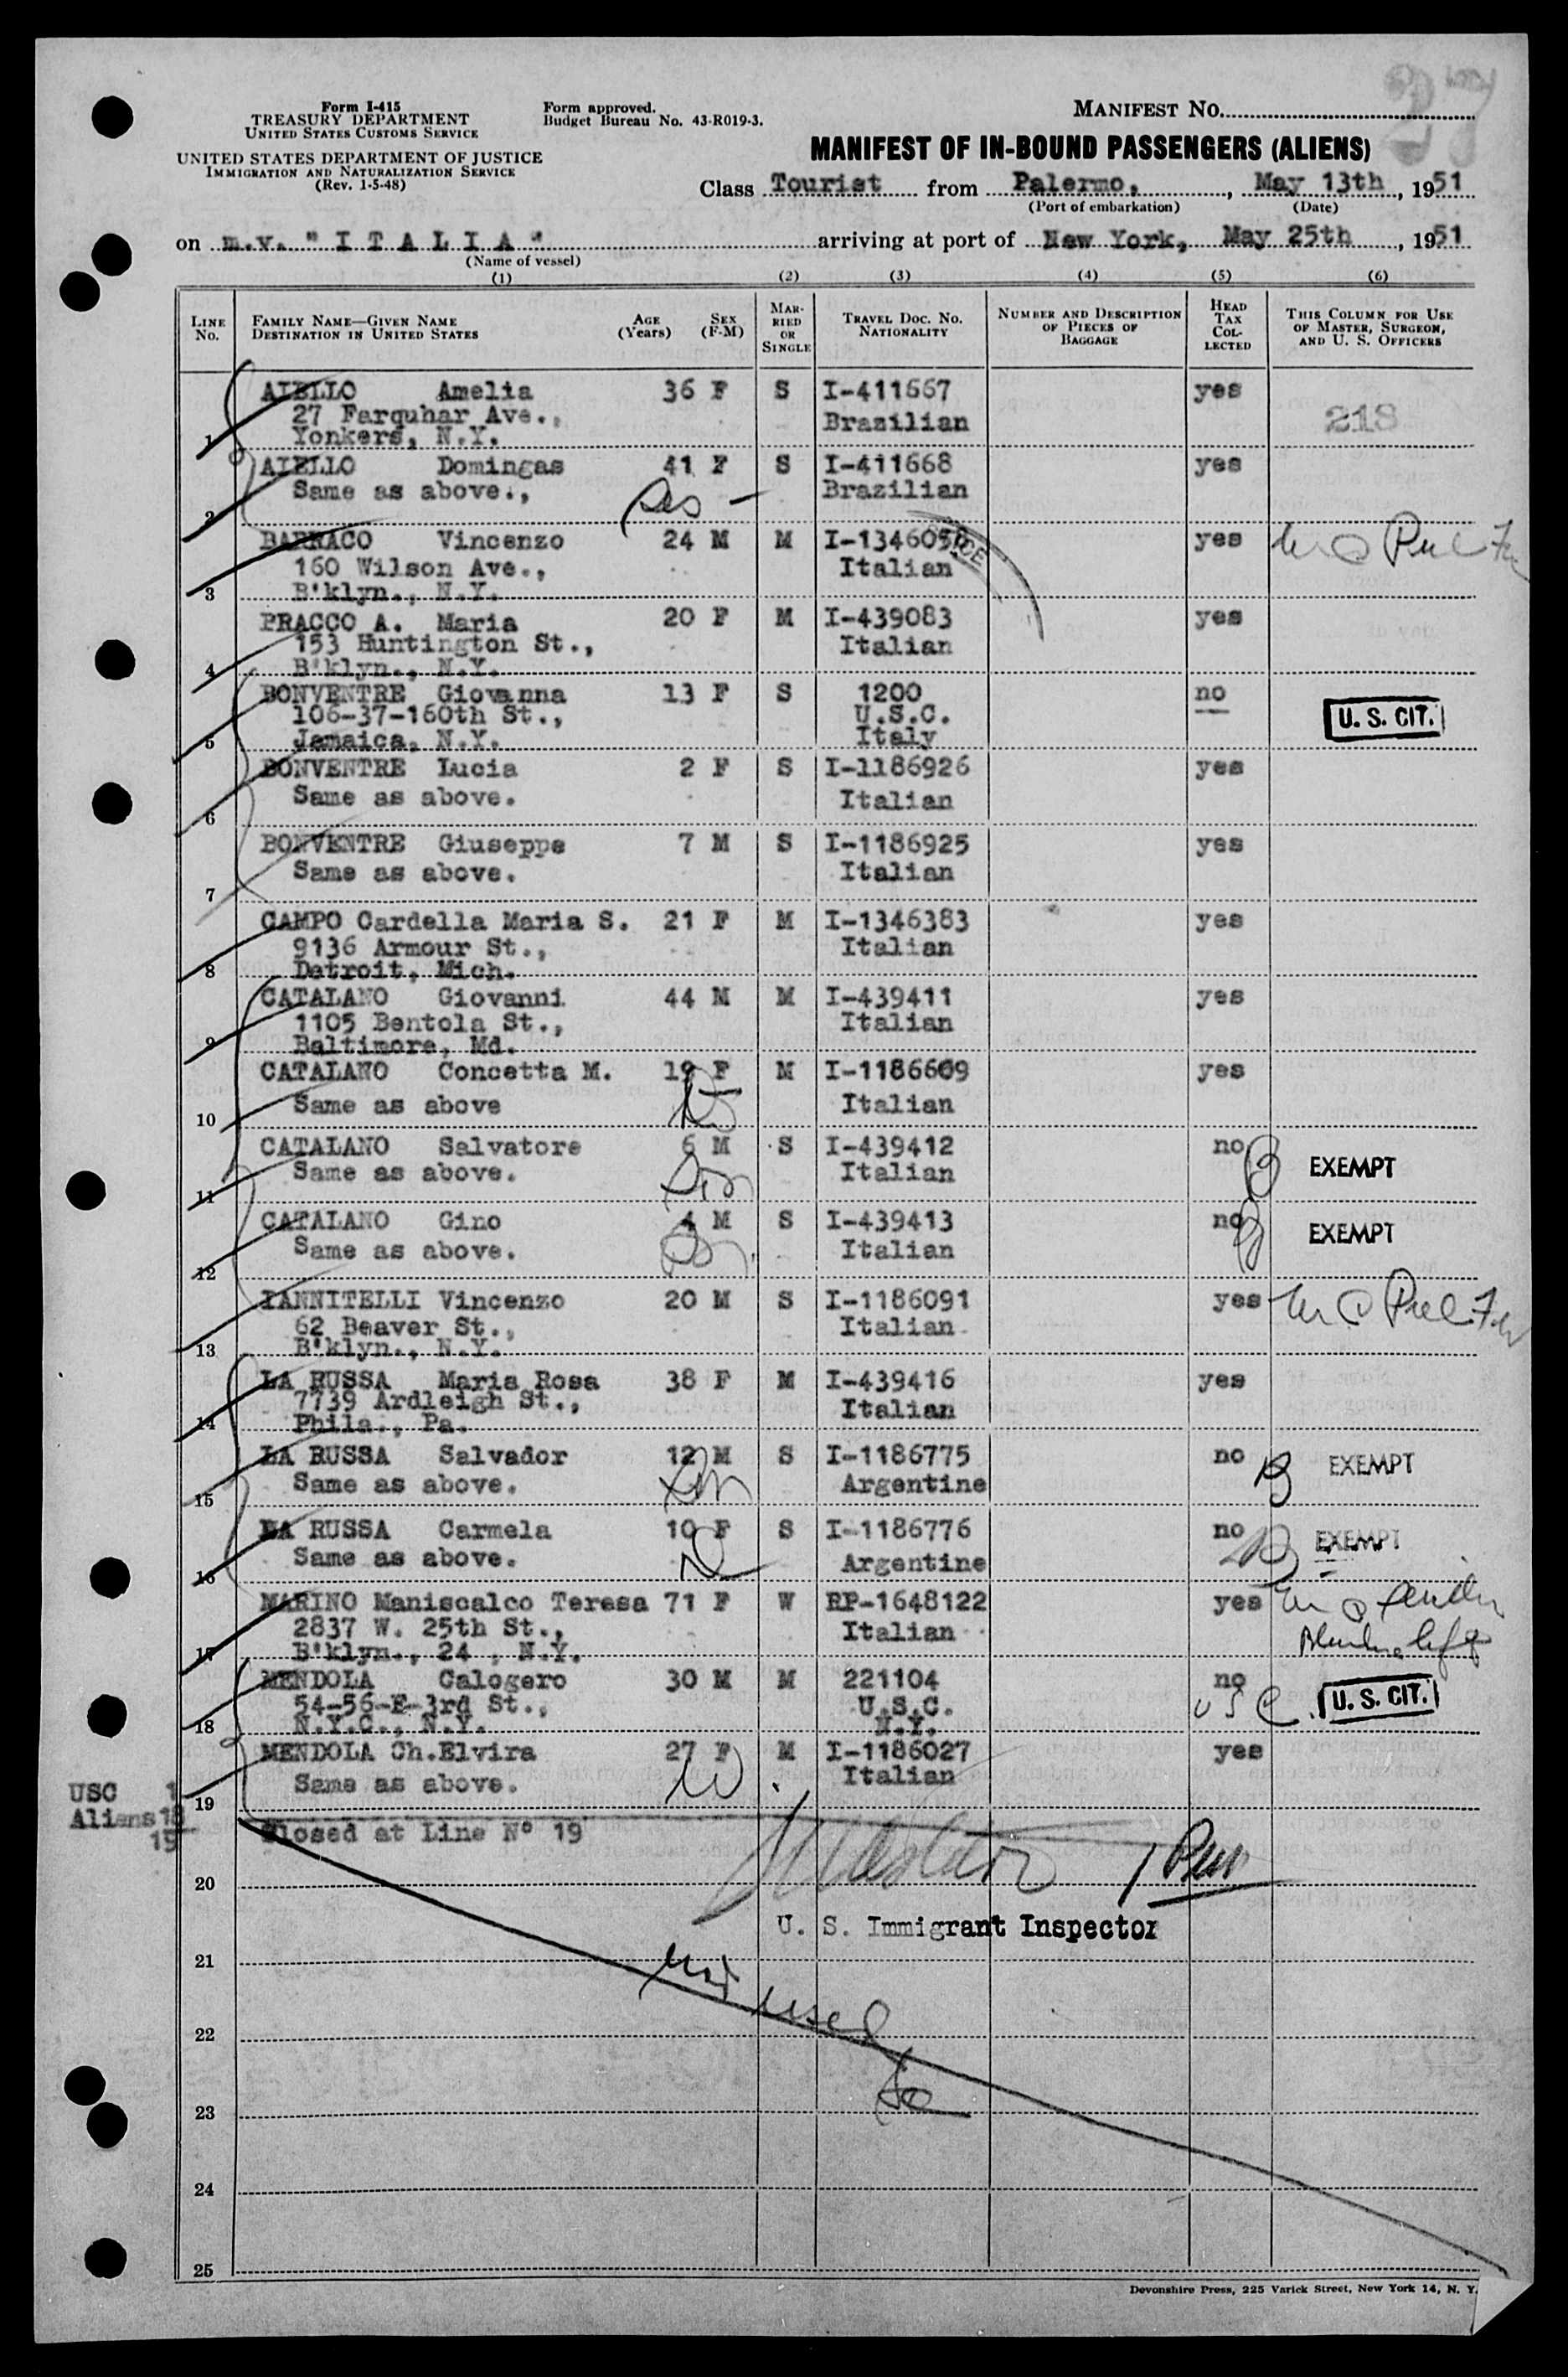 27
Form I-415
TREASURY DEPARTMENT
UNITED STATES CUSTOMS SERVICE
UNITED STATES DEPARTMENT OF JUSTICE
IMMIGRATION AND NATURALIZATION SERVICE
(Rev. 1-5-48)
Form approved.
Budget Bureau No. 43-R019-3.
MANIFEST NO.
MANIFEST OF IN-BOUND PASSENGERS (ALIENS)
Class Tourist from Palermo, , May 13th , 1951
(Port of embarkation) (Date)
on m.v. " I T A L I A " arriving at port of New York, May 25th , 1951
(Name of vessel)
(1) (2) (3) (4) (5) (6)
LINE No. FAMILY NAME—GIVEN NAME DESTINATION IN UNITED STATES AGE (Years) SEX (F-M) MARRIED OR SINGLE TRAVEL DOC. NO. NATIONALITY NUMBER AND DESCRIPTION OF PIECES OF BAGGAGE HEAD TAX COLLECTED THIS COLUMN FOR USE OF MASTER, SURGEON, AND U. S. OFFICERS
AIELLO Amelia 36 F S I-411667 yes
27 Farquhar Ave., Brazilian 218
1 Yonkers, N.Y.
AIELLO Domingas 41 F S I-411668 yes
Same as above., Brazilian
2
BARRACO Vincenzo 24 M M I-134605 yes
160 Wilson Ave., Italian
3 B'klyn., N.Y.
BRACCO A. Maria 20 F M I-439083 yes
153 Huntington St., Italian
4 B'klyn., N.Y.
BONVENTRE Giovanna 13 F S 1200 no
106-37-160th St., U.S.C. U. S. CIT.
5 Jamaica, N.Y. Italy
BONVENTRE Lucia 2 F S I-1186926 yes
Same as above. Italian
6
BONVENTRE Giuseppe 7 M S I-1186925 yes
Same as above. Italian
7
CAMPO Cardella Maria S. 21 F M I-1346383 yes
9136 Armour St., Italian
8 Detroit, Mich.
CATALANO Giovanni 44 M M I-439411 yes
1105 Bentola St., Italian
9 Baltimore, Md.
CATALANO Concetta M. 19 F M I-1186609 yes
Same as above Italian
10
CATALANO Salvatore 6 M S I-439412 no
Same as above. Italian EXEMPT
11
CATALANO Gino 4 M S I-439413 no
Same as above. Italian EXEMPT
12
IANNITELLI Vincenzo 20 M S I-1186091 yes
62 Beaver St., Italian
13 B'klyn., N.Y.
LA RUSSA Maria Rosa 38 F M I-439416 yes
7739 Ardleigh St., Italian
14 Phila., Pa.
LA RUSSA Salvador 12 M S I-1186775 no EXEMPT
Same as above. Argentine
15
LA RUSSA Carmela 10 F S I-1186776 no EXEMPT
Same as above. Argentine
16
MARINO Maniscalco Teresa 71 F W RP-1648122 yes
2837 W. 25th St., Italian
17 B'klyn., 24 , N.Y.
MENDOLA Calogero 30 M M 221104 no
54-56-E-3rd St., U.S.C. USC. U. S. CIT.
18 N.Y.C., N.Y. N.Y.
MENDOLA Ch.Elvira 27 F M I-1186027 yes
Same as above. W. Italian
19
USC 1
Aliens 18
19
Closed at Line Nº 19
20
U. S. Immigrant Inspector
21
22
not used
23
24
25
Devonshire Press, 225 Varick Street, New York 14, N. Y.